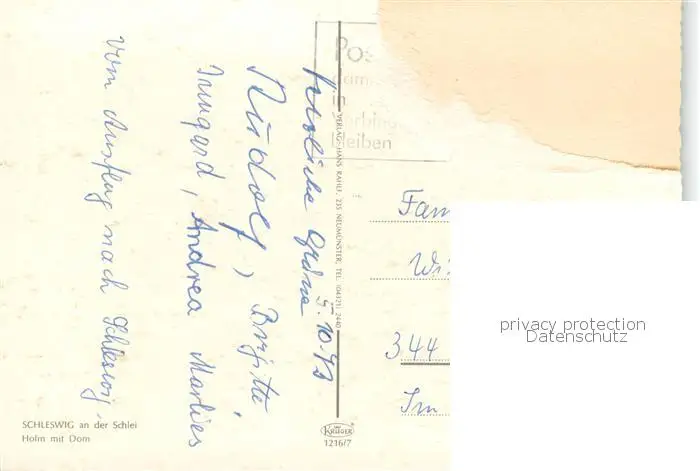 Herzliche Grüße
5.10.73
Rudolf, Brigitte
Irmgard, Andrea Marlies
vom Ausflug nach Schleswig.
Pos
in
bleiben
VERLAG HANS RAHLF, 235 NEUMÜNSTER, TEL. (04321) 2440
Fam
Wi
344
Im
privacy protection
Datenschutz
SCHLESWIG an der Schlei
Holm mit Dom
KRÜGER
1216/7